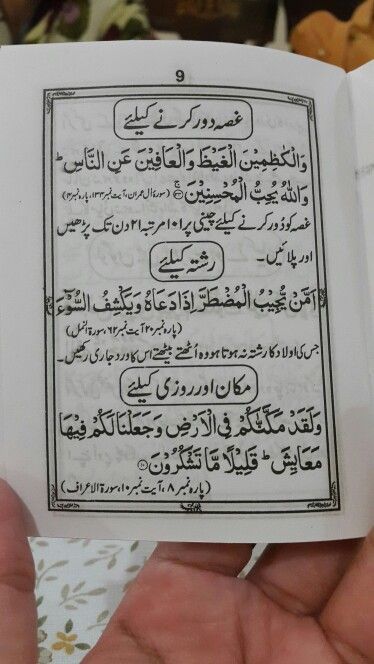 9
غصہ دور کرنے کیلئے
وَالْكٰظِمِيْنَ الْغَيْظَ وَالْعَافِيْنَ عَنِ النَّاسِ ؕ
وَاللّٰهُ يُحِبُّ الْمُحْسِنِيْنَ ۚ (سورۃ آل عمران، آیت نمبر ۱۳۴، پارہ نمبر ۴)
غصہ کو دُور کرنے کیلئے چینی پر ۱۰۱ مرتبہ ۲۱ دن تک پڑھیں
اور پلائیں۔
رشتہ کیلئے
اَمَّنْ يُّجِيْبُ الْمُضْطَرَّ اِذَا دَعَاهُ وَيَكْشِفُ السُّوْٓءَ
(پارہ نمبر ۲۰ آیت نمبر ۶۲، سورۃ النمل)
جس کی اولاد کا رشتہ نہ ہوتا ہو وہ اُٹھتے بیٹھتے اس کا ورد جاری رکھیں۔
مکان اور روزی کیلئے
وَلَقَدْ مَكَّنّٰكُمْ فِى الْاَرْضِ وَجَعَلْنَا لَكُمْ فِيْهَا
مَعَايِشَ ؕ قَلِيْلًا مَّا تَشْكُرُوْنَ ۱۰
(پارہ نمبر ۸، آیت نمبر ۱۰، سورۃ الاعراف)